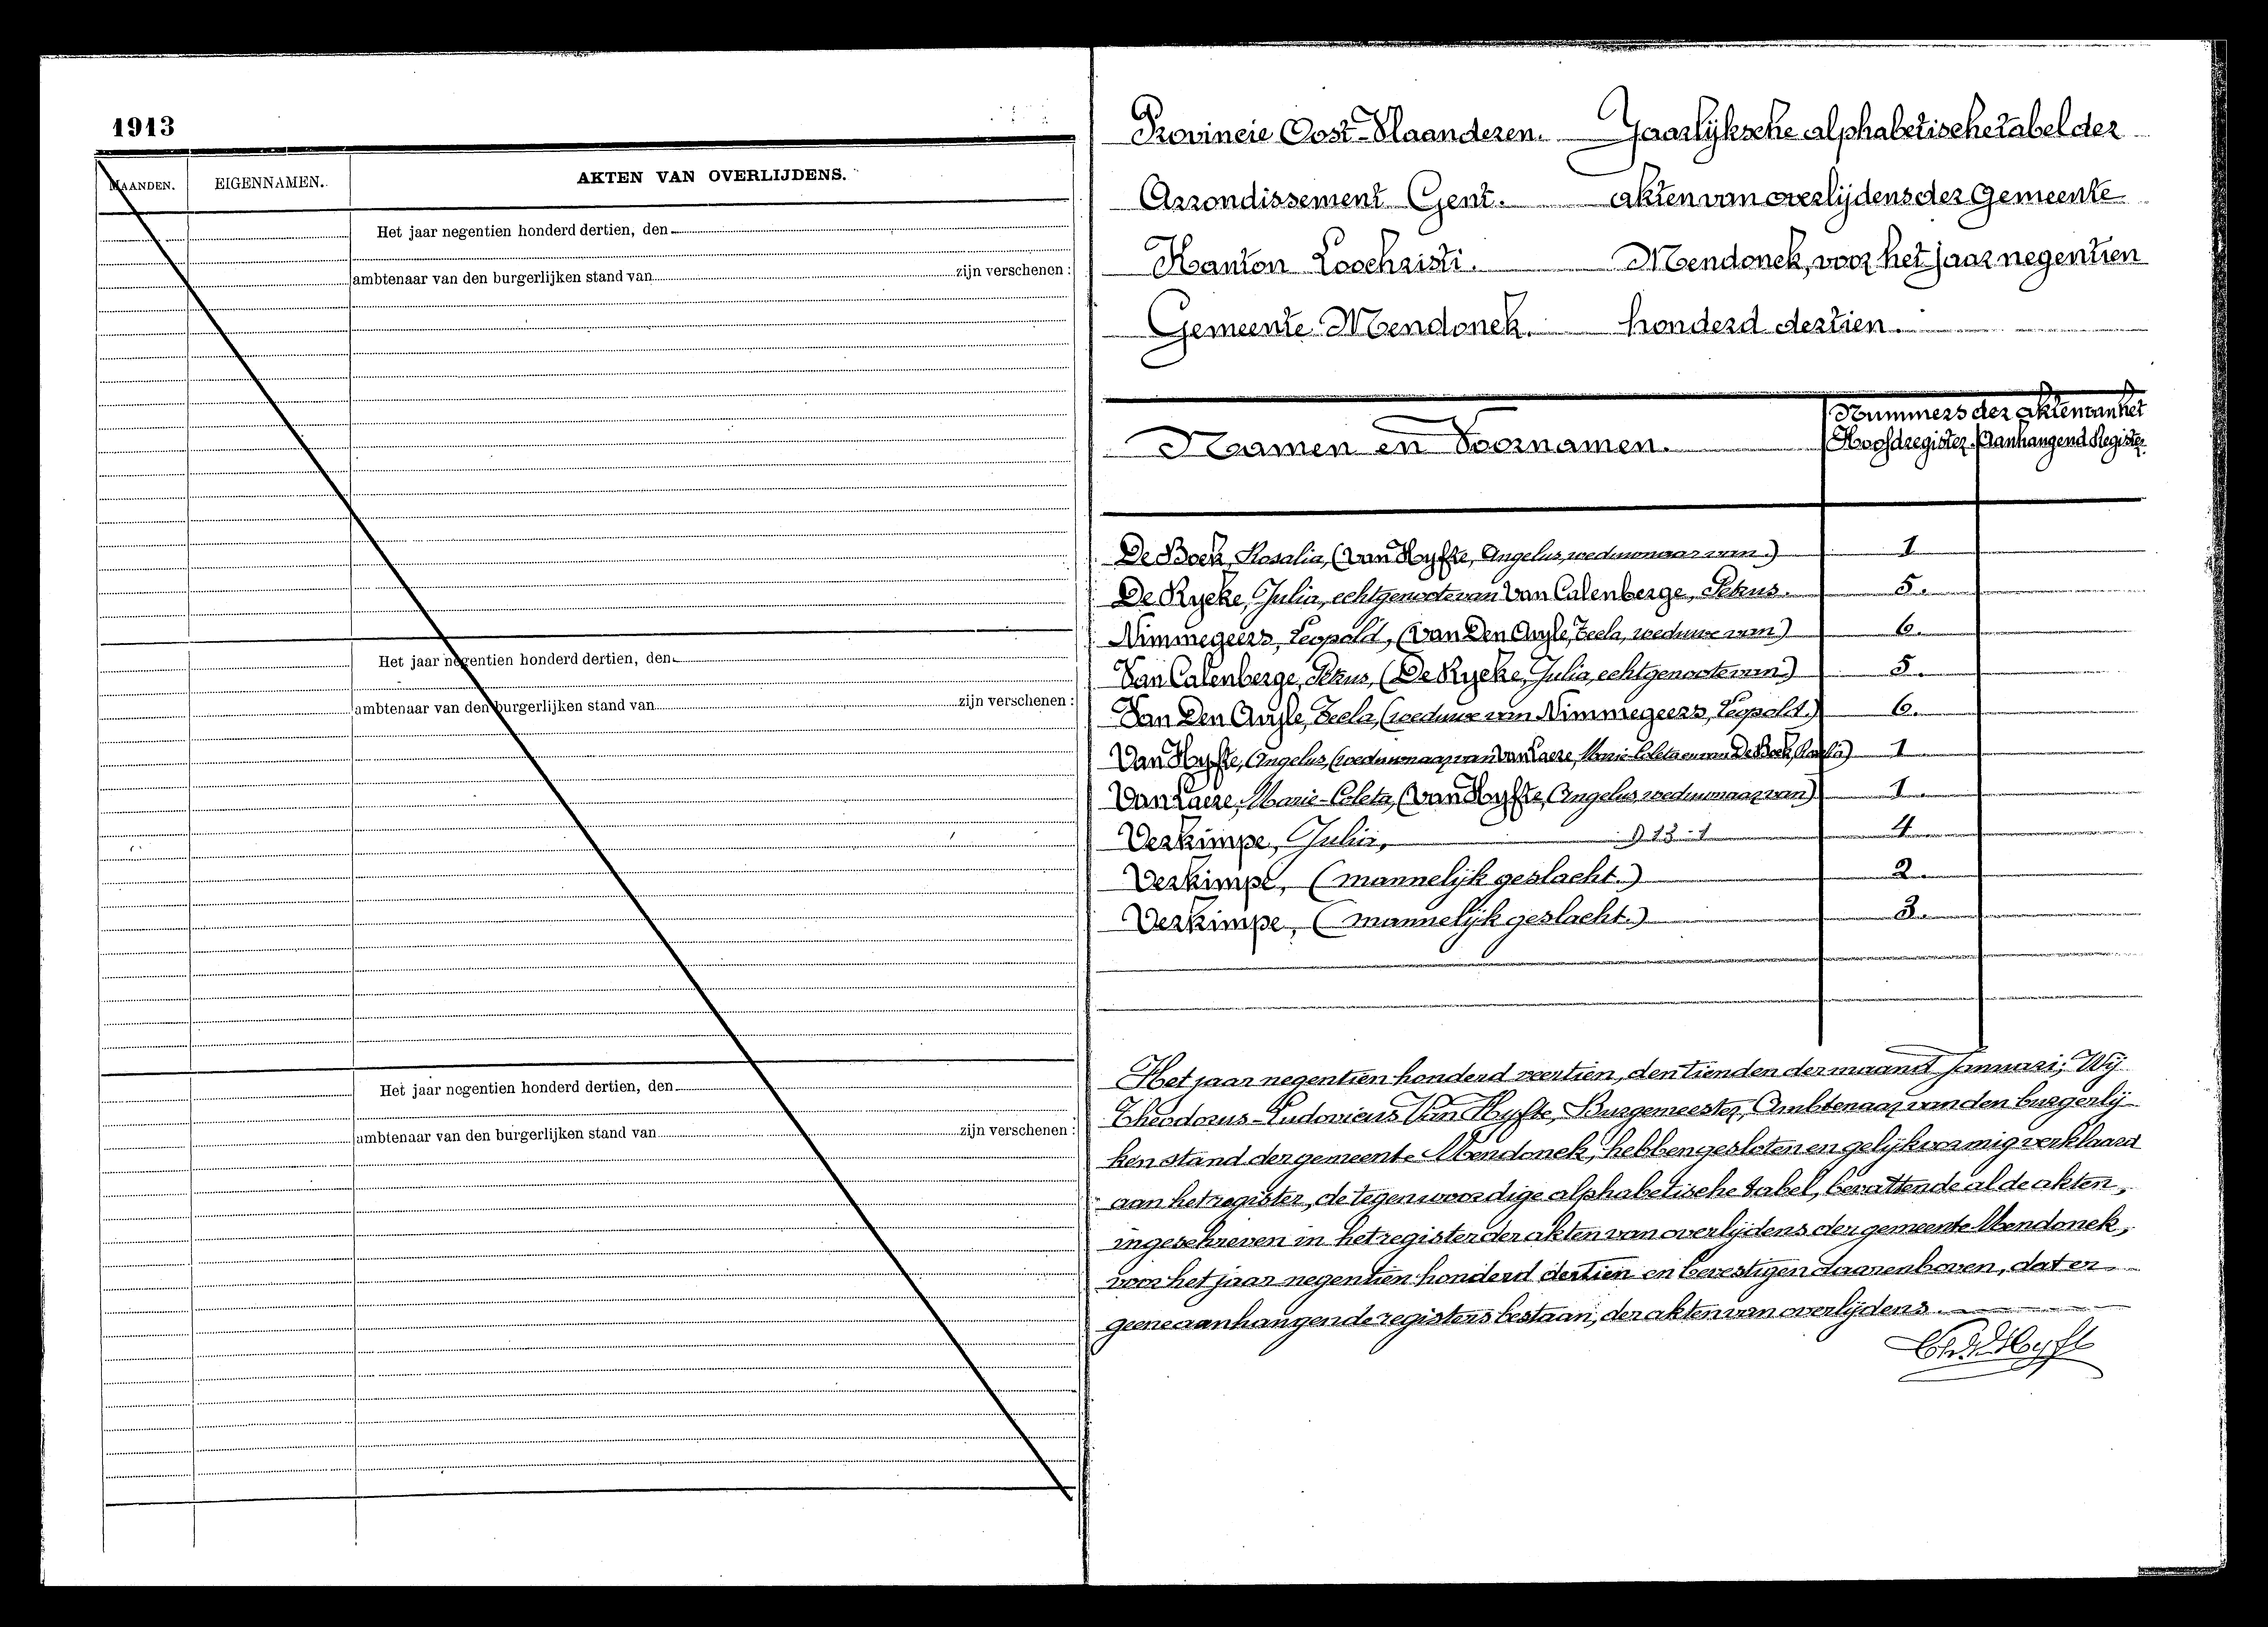 1913
MAANDEN.
EIGENNAMEN.
AKTEN VAN OVERLIJDENS.
Het jaar negentien honderd dertien, den
ambtenaar van den burgerlijken stand van zijn verschenen :
Het jaar negentien honderd dertien, den
ambtenaar van den burgerlijken stand van zijn verschenen :
Het jaar negentien honderd dertien, den
ambtenaar van den burgerlijken stand van zijn verschenen :
Provincie Oost-Vlaanderen. Jaarlijksche alphabetische tabel der
Arrondissement Gent. akten van overlijdens der Gemeente
Kanton Loochristi. Mendonck, voor het jaar negentien
Gemeente Mendonck. honderd dertien.
Naamen en Voornamen.
Nummers der akten van het
Hoofdregister. Aanhangend Register.
De Bock, Rosalia, (Van Hyfte, Angelus, weduwnaar van.) 1
De Rycke, Julia, echtgenoote van Van Calenberge, Petrus. 5.
Nimmegeers, Leopold, (Van Den Auyle, Tecla, weduwe van) 6.
Van Calenberge, Petrus, (De Rycke, Julia, echtgenoote van.) 5.
Van Den Auyle, Tecla, (weduwe van Nimmegeers, Leopold.) 6.
Van Hyfte, Angelus, (weduwnaar van Van Laere, Marie-Coleta en van De Bock, Rosalia) 1
Van Laere, Marie-Coleta, (Van Hyfte, Angelus, weduwnaar van) 1.
Verkimpe, Julia, 913-1 4
Verkimpe, (mannelijk geslacht.) 2.
Verkimpe, (mannelijk geslacht.) 3.
Het jaar negentien honderd veertien, den tienden der maand Januari; Wij
Theodorus-Ludovicus Van Hyfte, Burgemeester, Ambtenaar van den burgerlij-
ken stand der gemeente Mendonck, hebben gesloten en gelijkvormig verklaard
aan het register, de tegenwoordige alphabetische tabel, bevattende al de akten,
ingeschreven in het register der akten van overlijdens der gemeente Mendonck,
voor het jaar negentien honderd dertien en bevestigen daarenboven, dat er
geene aanhangende registers bestaan, der akten van overlijdens.